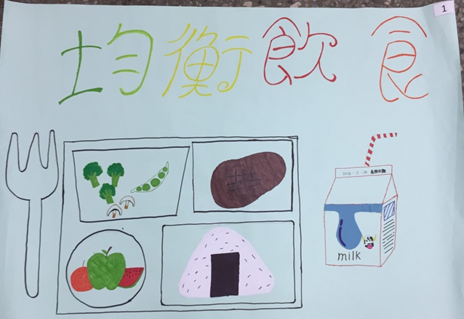 1
均衡飲食
milk